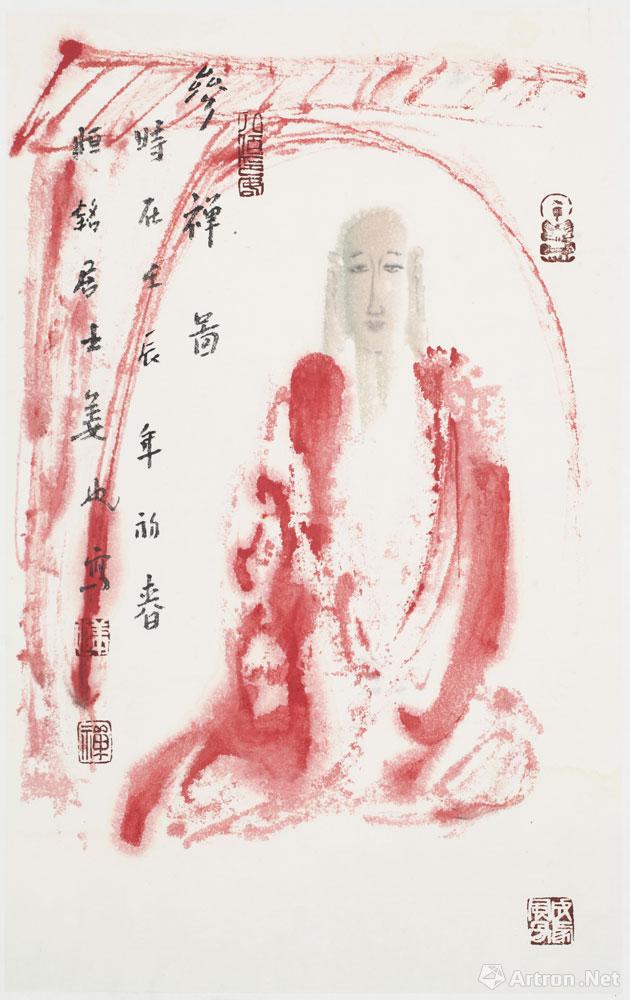 參禪图
時在壬辰年初春
恒銘居士姜也寫
禪
Artron.Net